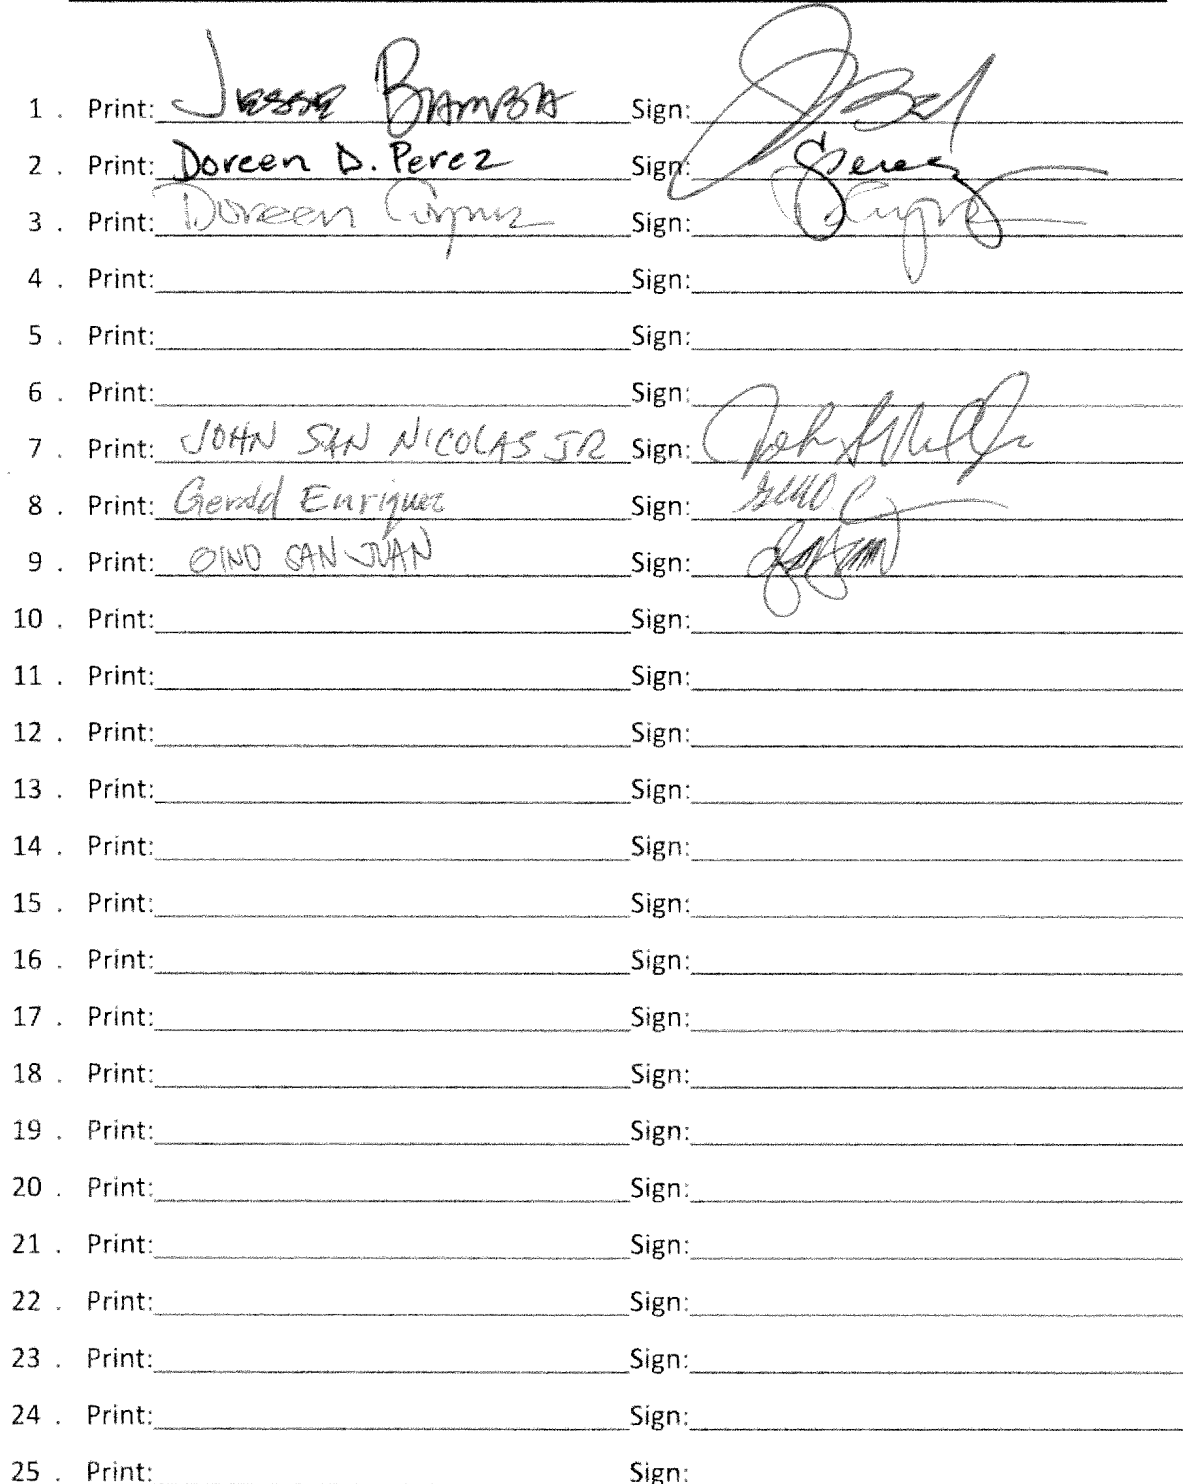 1 . Print: JESSE BAMBA Sign:
2 . Print: Doreen D. Perez Sign: Perez
3 . Print: Doreen Sign:
4 . Print: Sign:
5 . Print: Sign:
6 . Print: Sign:
7 . Print: JOHN SAN NICOLAS JR Sign:
8 . Print: Gerald Enriquez Sign:
9 . Print: SAN JUAN Sign:
10 . Print: Sign:
11 . Print: Sign:
12 . Print: Sign:
13 . Print: Sign:
14 . Print: Sign:
15 . Print: Sign:
16 . Print: Sign:
17 . Print: Sign:
18 . Print: Sign:
19 . Print: Sign:
20 . Print: Sign:
21 . Print: Sign:
22 . Print: Sign:
23 . Print: Sign:
24 . Print: Sign:
25 . Print: Sign: